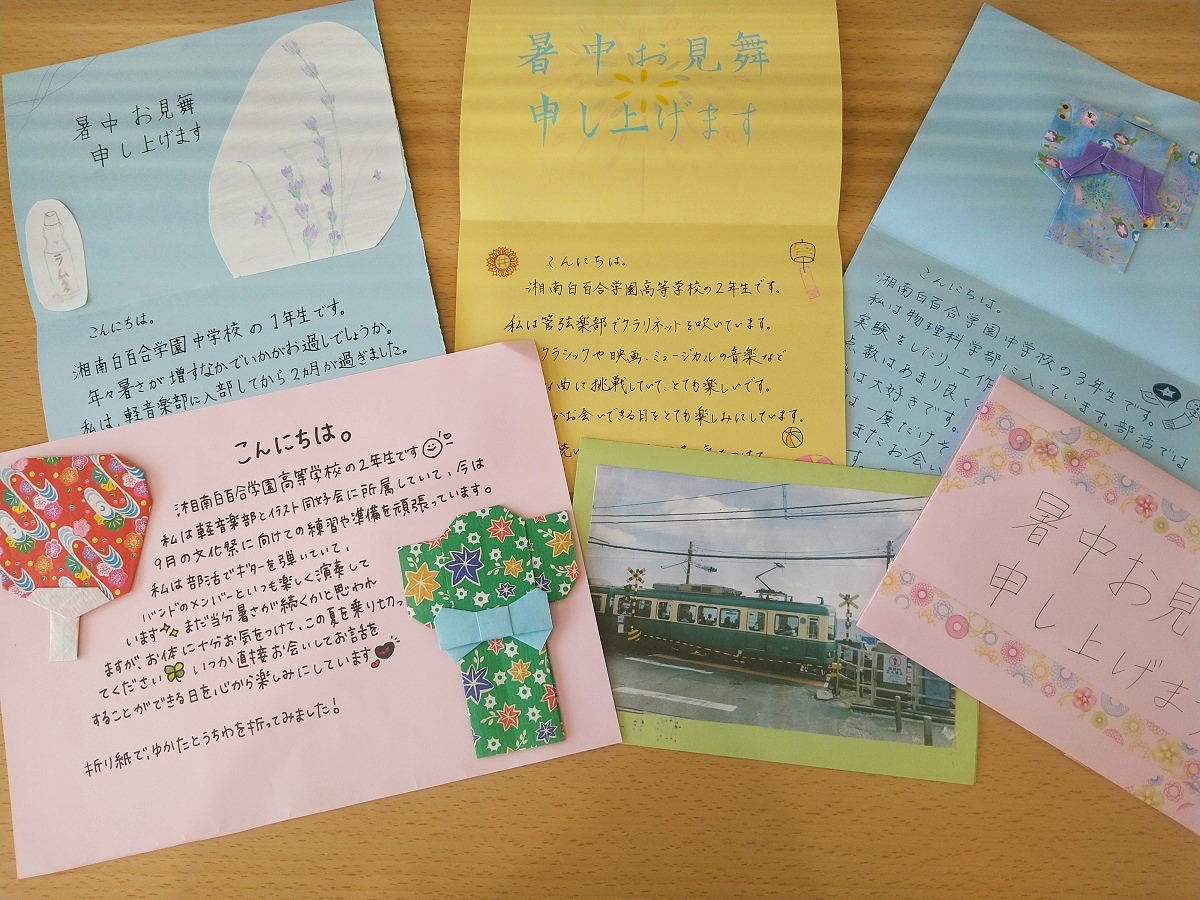 暑中お見舞
申し上げます
ラムネ
こんにちは。
湘南白百合学園中学校の1年生です。
年々暑さが増すなかでいかがお過しでしょうか。
私は、軽音楽部に入部してから2カ月が過ぎました。
暑中お見舞
申し上げます
こんにちは。
湘南白百合学園高等学校の2年生です。
私は管弦楽部でクラリネットを吹いています。
クラシックや映画、ミュージカルの音楽など
曲に挑戦していて、とても楽しいです。
お会いできる日をとても楽しみにしています。
こんにちは。
湘南白百合学園中学校の3年生です。
私は物理科学部に入っています。部活では
実験をしたり、工作
点数はあまり良く
は大好きです。
は一度だけ
またお会い
こんにちは。
湘南白百合学園高等学校の2年生です
私は軽音楽部とイラスト同好会に所属していて、今は
9月の文化祭に向けての練習や準備を頑張っています。
私は部活でギターを弾いていて、
バンドのメンバーといつも楽しく演奏して
います まだ当分暑さが続くかと思われ
ますが、お体に十分お気をつけて、この夏を乗り切っ
てください いつか直接お会いしてお話を
することができる日を心から楽しみにしています
折り紙で、ゆかたとうちわを折ってみました!
暑中お見
申し上げま